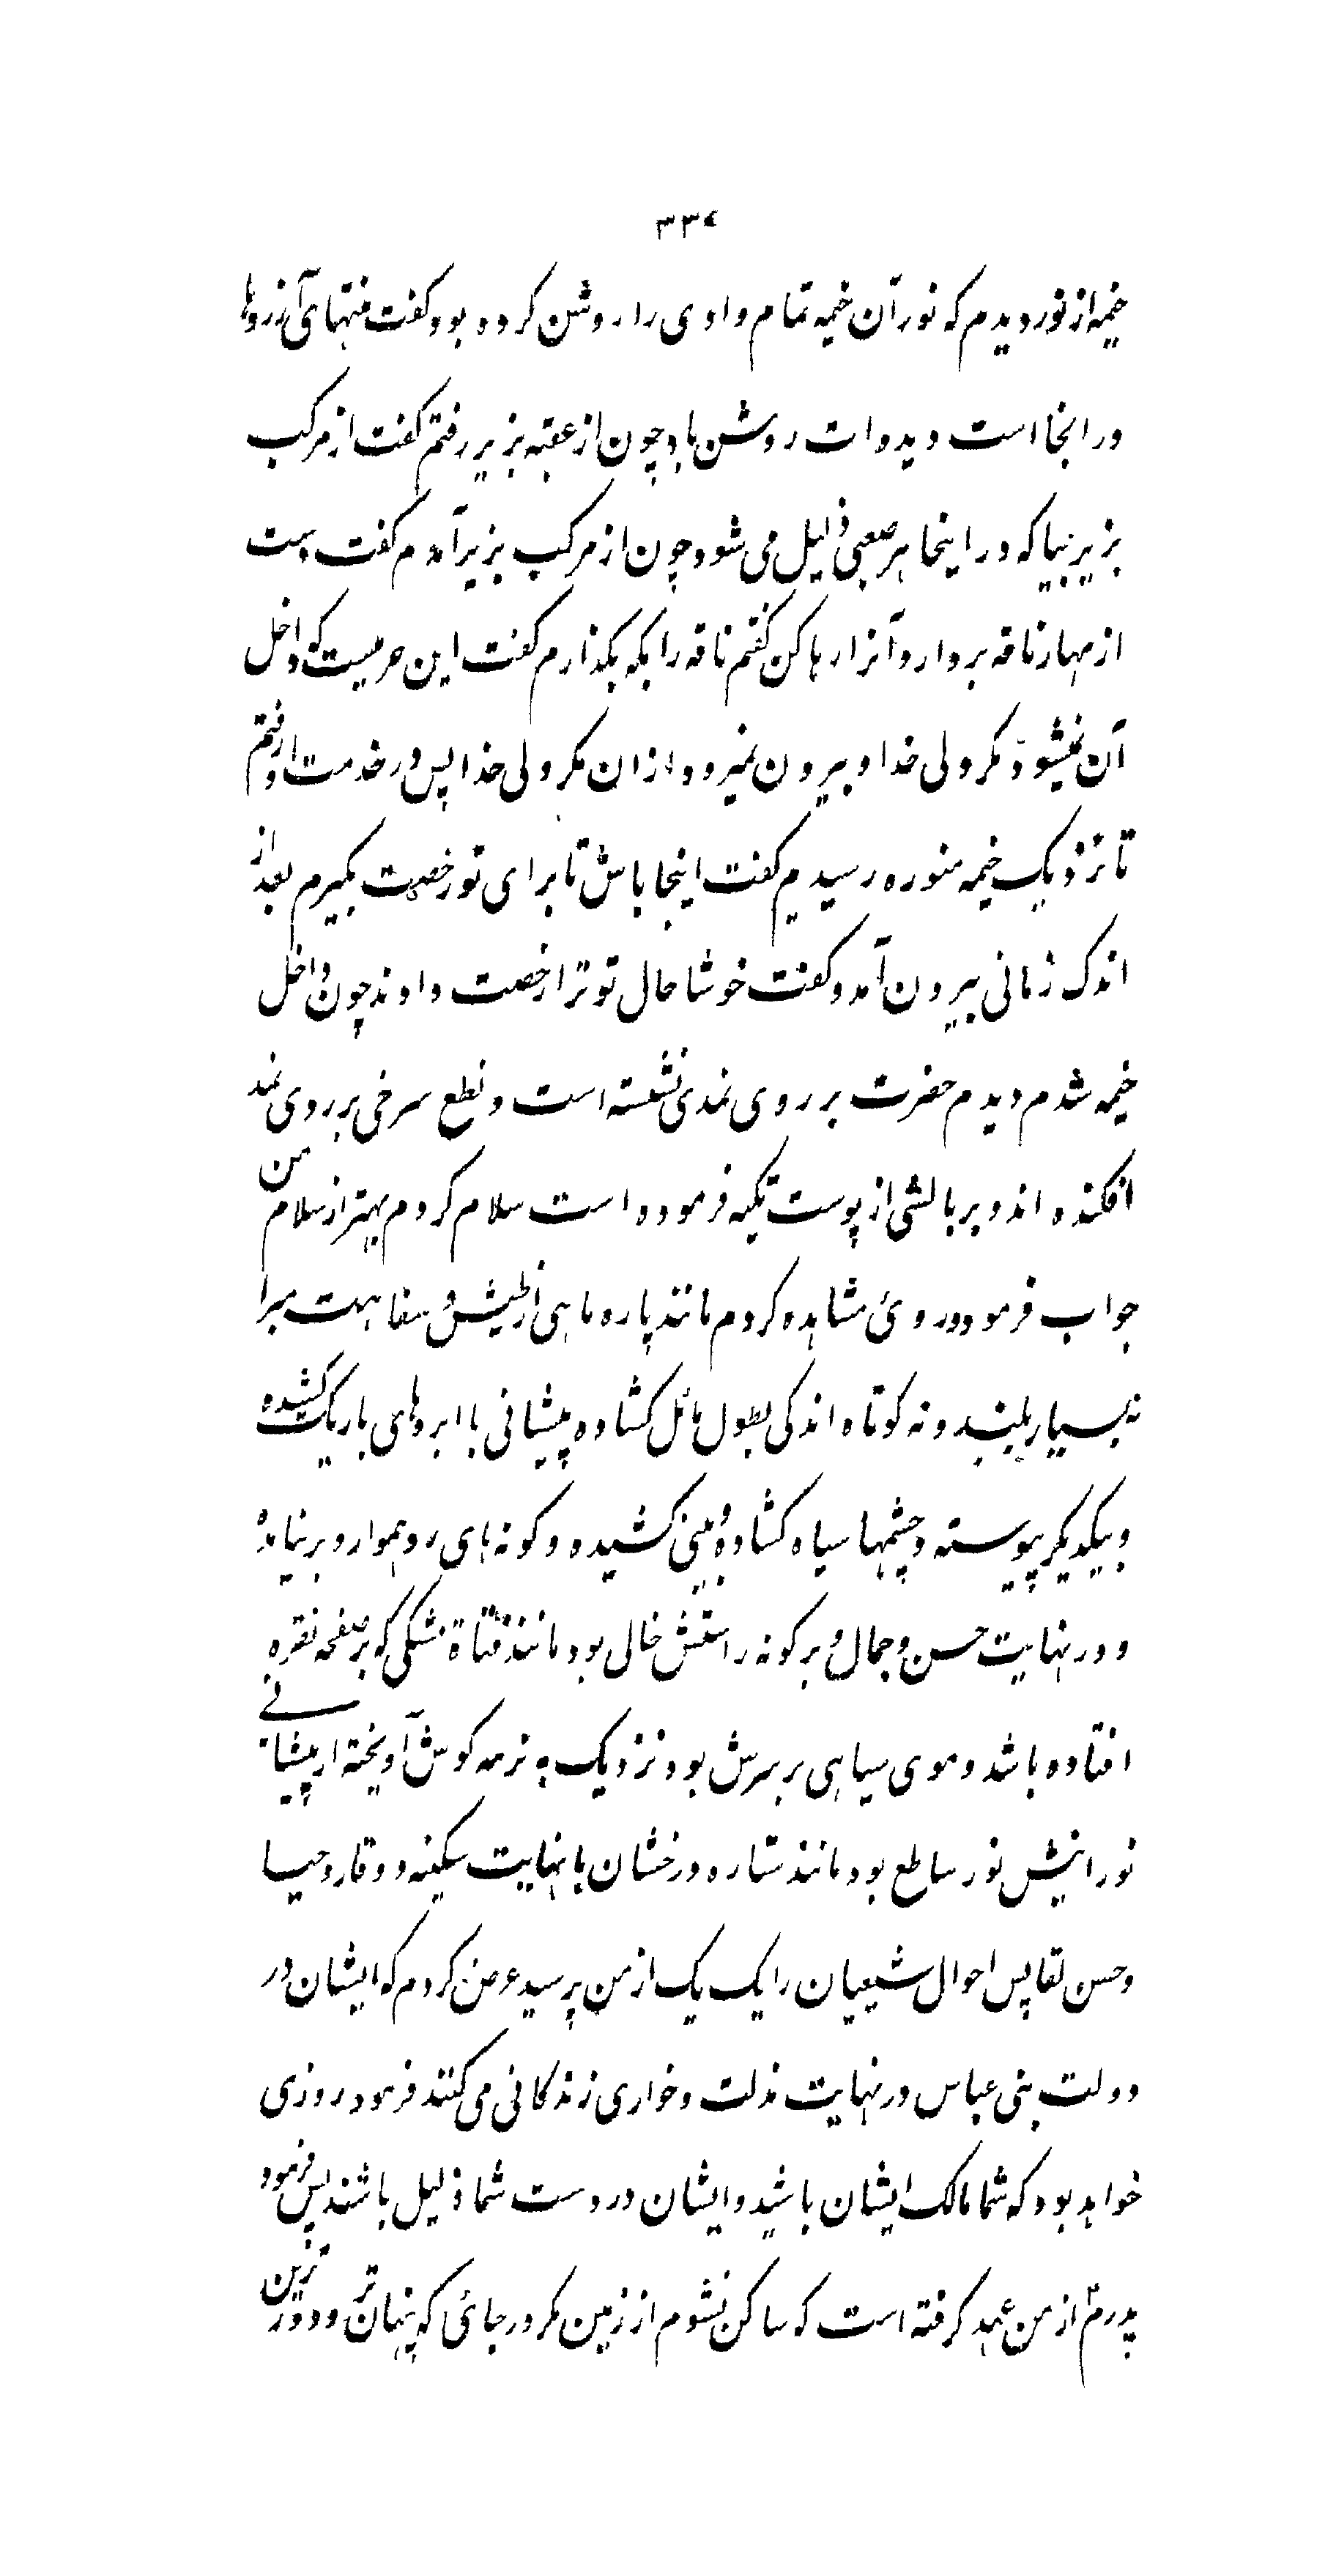 ۳۳۴
خیمه از نور دیدم که نور آن خیمه تمام وادی را روشن کرده بود گفت منتهای آرزوها
در انجا است دیده ات روشن باد چون از عقبه بزیر رفتم گفت از مرکب
بزیر بیا که در اینجا هر صعبی ذلیل می شود چون از مرکب بزیر آمدم گفت دست
از مهار ناقه بردار و آنرا رها کن گفتم ناقه را بکه بگذارم گفت این حرمیست که داخل
آن نمیشود مگر ولی خدا و بیرون نمیرود ازان مگر ولی خدا پس در خدمت او رفتم
تا نزدیک خیمه منوره رسیدیم گفت اینجا باش تا برای تو رخصت بگیرم بعد از
اندک زمانی بیرون آمد و گفت خوشا حال تو ترا رخصت دادند چون داخل
خیمه شدم دیدم حضرت بر روی نمدی نشسته است و نطع سرخی بر روی نمد
افکنده اند و بر بالشی از پوست تکیه فرموده است سلام کردم بهتر از سلام من
جواب فرمود و روئ مشاهده کردم مانند پاره ماهی از طیش و سفاهت مبرا
نه بسیار بلند و نه کوتاه اندکی بطول مائل کشاده پیشانی با ابروهای باریک کشیده
و بیکدیگر پیوسته و چشمها سیاه کشاده و بینی کشیده و گونه های رو هموار و برنیامده
و در نهایت حسن و جمال و بر گونه راستش خالی بود مانند فتاة مشکی که بر صفحه نقره
افتاده باشد و موی سیاهی بر سرش بود نزدیک به نرمه گوش آویخته از پیشانی
نورانیش نور ساطع بود مانند ستاره درخشان با نهایت سکینه و وقار و حیا
و حسن لقا پس احوال شیعیان را یک یک از من پرسید عرض کردم که ایشان در
دولت بنی عباس در نهایت مذلت و خواری زندگانی می کنند فرمود روزی
خواهد بود که شما مالک ایشان باشید و ایشان در دست شما ذلیل باشند پس فرمود
پدرم از من عهد گرفته است که ساکن نشوم از زمین مگر در جائی که پنهان تر و دور ترین